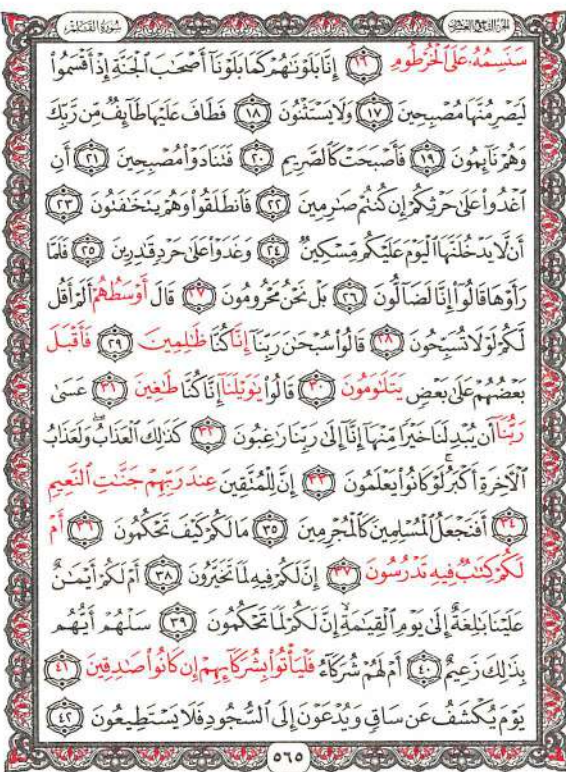 الجزء التاسع والعشرون سُورَةُ القَلَمِ
سَنَسِمُهُۥ عَلَى ٱلْخُرْطُومِ ١٦ إِنَّا بَلَوْنَٰهُمْ كَمَا بَلَوْنَآ أَصْحَٰبَ ٱلْجَنَّةِ إِذْ أَقْسَمُوا۟
لَيَصْرِمُنَّهَا مُصْبِحِينَ ١٧ وَلَا يَسْتَثْنُونَ ١٨ فَطَافَ عَلَيْهَا طَآئِفٌ مِّن رَّبِّكَ
وَهُمْ نَآئِمُونَ ١٩ فَأَصْبَحَتْ كَٱلصَّرِيمِ ٢٠ فَتَنَادَوْا۟ مُصْبِحِينَ ٢١ أَنِ
ٱغْدُوا۟ عَلَىٰ حَرْثِكُمْ إِن كُنتُمْ صَٰرِمِينَ ٢٢ فَٱنطَلَقُوا۟ وَهُمْ يَتَخَٰفَتُونَ ٢٣
أَن لَّا يَدْخُلَنَّهَا ٱلْيَوْمَ عَلَيْكُم مِّسْكِينٌ ٢٤ وَغَدَوْا۟ عَلَىٰ حَرْدٍ قَٰدِرِينَ ٢٥ فَلَمَّا
رَأَوْهَا قَالُوٓا۟ إِنَّا لَضَآلُّونَ ٢٦ بَلْ نَحْنُ مَحْرُومُونَ ٢٧ قَالَ أَوْسَطُهُمْ أَلَمْ أَقُل
لَّكُمْ لَوْلَا تُسَبِّحُونَ ٢٨ قَالُوا۟ سُبْحَٰنَ رَبِّنَآ إِنَّا كُنَّا ظَٰلِمِينَ ٢٩ فَأَقْبَلَ
بَعْضُهُمْ عَلَىٰ بَعْضٍ يَتَلَٰوَمُونَ ٣٠ قَالُوا۟ يَٰوَيْلَنَآ إِنَّا كُنَّا طَٰغِينَ ٣١ عَسَىٰ
رَبُّنَآ أَن يُبْدِلَنَا خَيْرًا مِّنْهَآ إِنَّآ إِلَىٰ رَبِّنَا رَٰغِبُونَ ٣٢ كَذَٰلِكَ ٱلْعَذَابُ ۖ وَلَعَذَابُ
ٱلْءَاخِرَةِ أَكْبَرُ ۚ لَوْ كَانُوا۟ يَعْلَمُونَ ٣٣ إِنَّ لِلْمُتَّقِينَ عِندَ رَبِّهِمْ جَنَّٰتِ ٱلنَّعِيمِ
٣٤ أَفَنَجْعَلُ ٱلْمُسْلِمِينَ كَٱلْمُجْرِمِينَ ٣٥ مَا لَكُمْ كَيْفَ تَحْكُمُونَ ٣٦ أَمْ
لَكُمْ كِتَٰبٌ فِيهِ تَدْرُسُونَ ٣٧ إِنَّ لَكُمْ فِيهِ لَمَا تَخَيَّرُونَ ٣٨ أَمْ لَكُمْ أَيْمَٰنٌ
عَلَيْنَا بَٰلِغَةٌ إِلَىٰ يَوْمِ ٱلْقِيَٰمَةِ ۙ إِنَّ لَكُمْ لَمَا تَحْكُمُونَ ٣٩ سَلْهُمْ أَيُّهُم
بِذَٰلِكَ زَعِيمٌ ٤٠ أَمْ لَهُمْ شُرَكَآءُ فَلْيَأْتُوا۟ بِشُرَكَآئِهِمْ إِن كَانُوا۟ صَٰدِقِينَ ٤١
يَوْمَ يُكْشَفُ عَن سَاقٍ وَيُدْعَوْنَ إِلَى ٱلسُّجُودِ فَلَا يَسْتَطِيعُونَ ٤٢
٥٦٥